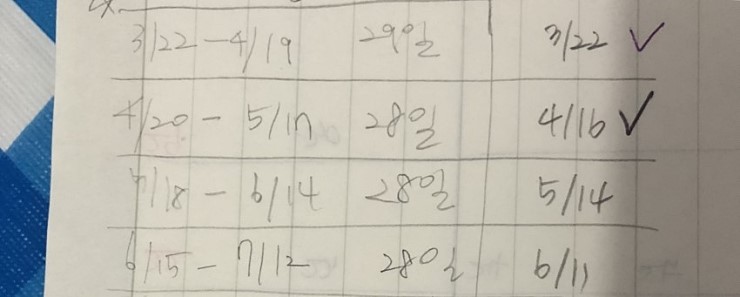 3/22 - 4/19 29일 3/22 ✓
4/20 - 5/17 28일 4/16 ✓
5/18 - 6/14 28일 5/14
6/15 - 7/12 28일 6/11